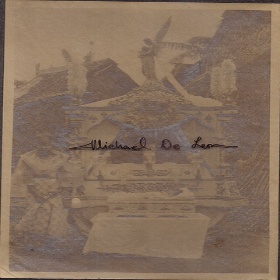 Michael De Leon